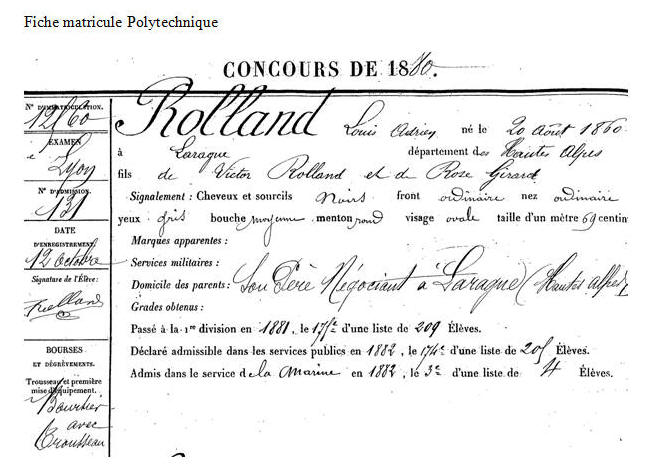 Fiche matricule Polytechnique
CONCOURS DE 1880.
N° D'IMMATRICULATION.
12/60
EXAMEN
à Lyon
N° D'ADMISSION.
131
DATE
D'ENREGISTREMENT.
12 octobre
Signature de l'Élève:
Rolland
BOURSES
ET DÉGRÈVEMENTS.
Trousseau et première
mise d'équipement.
Boursier
avec
Trousseau
Rolland Louis Adrien né le 20 Août 1860
à Laragne département des Hautes Alpes
fils de Victor Rolland et de Rose Girard
Signalement : Cheveux et sourcils Noirs front ordinaire nez ordinaire
yeux gris bouche moyenne menton rond visage ovale taille d'un mètre 69 centim
Marques apparentes :
Services militaires :
Domicile des parents: Son Père Négociant à Laragne (Hautes Alpes)
Grades obtenus :
Passé à la 1re division en 1881, le 175e d'une liste de 209 Élèves.
Déclaré admissible dans les services publics en 1882, le 174e d'une liste de 205 Élèves.
Admis dans le service de la Marine en 1882, le 3e d'une liste de 4 Élèves.